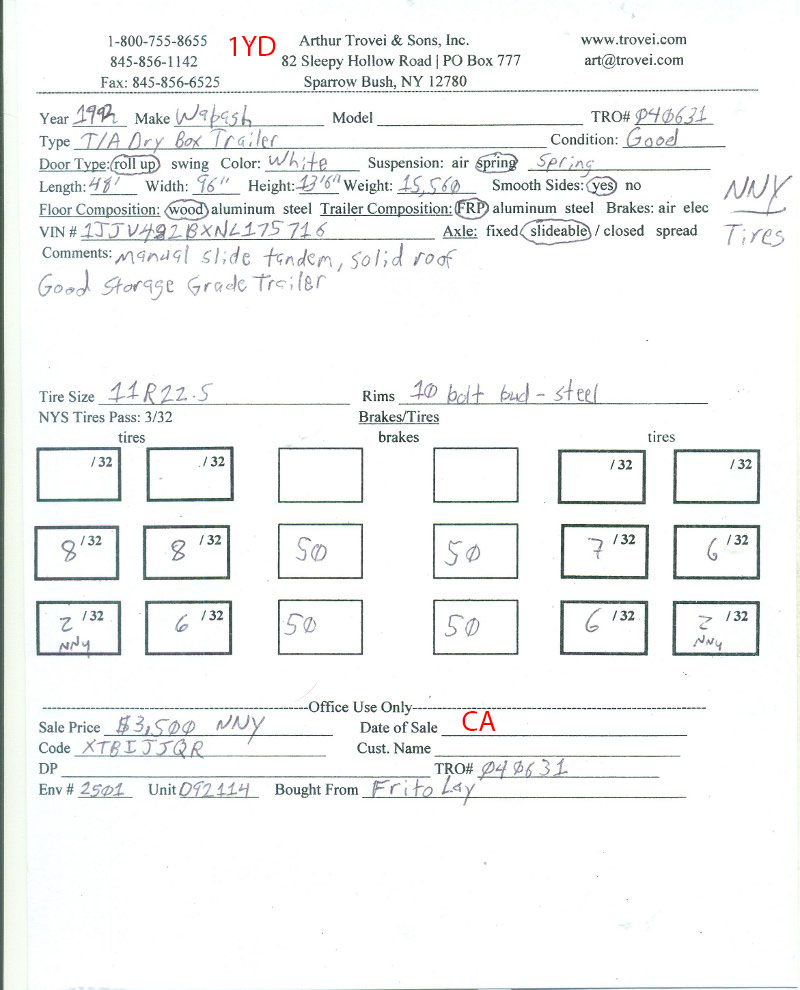 1-800-755-8655 1YD Arthur Trovei & Sons, Inc. www.trovei.com
845-856-1142 82 Sleepy Hollow Road | PO Box 777 art@trovei.com
Fax: 845-856-6525 Sparrow Bush, NY 12780
Year 1992 Make Wabash Model TRO# 040631
Type T/A Dry Box Trailer Condition: Good
Door Type: roll up swing Color: White Suspension: air spring Spring
Length: 48' Width: 96" Height: 13'6" Weight: 15,560 Smooth Sides: yes no
Floor Composition: wood aluminum steel Trailer Composition: FRP aluminum steel Brakes: air elec
NNY
VIN # 1JJV482BXNL175716 Axle: fixed slideable / closed spread
Tires
Comments: manual slide tandem, solid roof
Good Storage Grade Trailer
Tire Size 11R22.5 Rims 10 bolt bud - steel
NYS Tires Pass: 3/32 Brakes/Tires
tires brakes tires
/32 /32 /32 /32
8/32 8/32 50 50 7/32 6/32
2/32 6/32 50 50 6/32 2/32
NNY NNY
Office Use Only
Sale Price $3,500 NNY Date of Sale CA
Code XTBIJJQR Cust. Name
DP TRO# 040631
Env # 2501 Unit 092114 Bought From Frito Lay